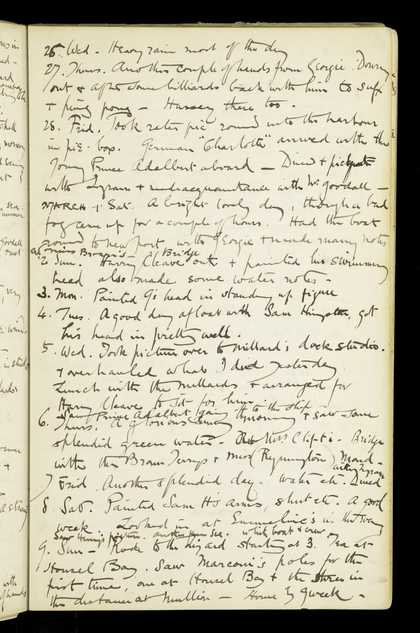 26. Wed. Heavy rain most of the day
27. Thurs. Another couple of heads from Georgie. Downy
out & after some billiards back with him to supper
& ping pong - Hussey there too.
28. Frid. Took rater pic round into the harbour
in pic. box. German "Charlotte" arrived with the
young Prince Adelbert aboard - Dined +
with Ingram & made acquaintance with Mr Goodall -
MARCH 1. Sat. A bright lovely day, though a bad
fog came up for a couple of hours. Had the boat
round to new port with Georgie & made many notes
at evening Bridge
2 Sun. Having Cleave out & painted his swimming
head also made some water notes -
3. Mon. Painted G's head in standing up figure
4. Tues. A good day afloat with Sam Hingston, got
his head in pretty well.
5. Wed. Took picture over to Millard's dock studio.
& overhauled what I did yesterday.
Lunch with the Mullards & arranged for
Harry Cleave to sit for him
Prince Adelbert going to the ship
6. Thurs. A glorious sunny morning & saw some
splendid green water. Miss Clift i. Bridge
with the
7 Frid. Another splendid day. Water etc. Dined
8 Sat. Painted Sam H's arms, shut etc. A good
week. Looked in at Emmeline's in the evening
9. Sun - Rode to the Lizard starting at 3. Tea at
Housel Bay. Saw Marconi's poles for the
first time, one at Housel Bay & the three in
the distance at Mullion - Home by 9 week -